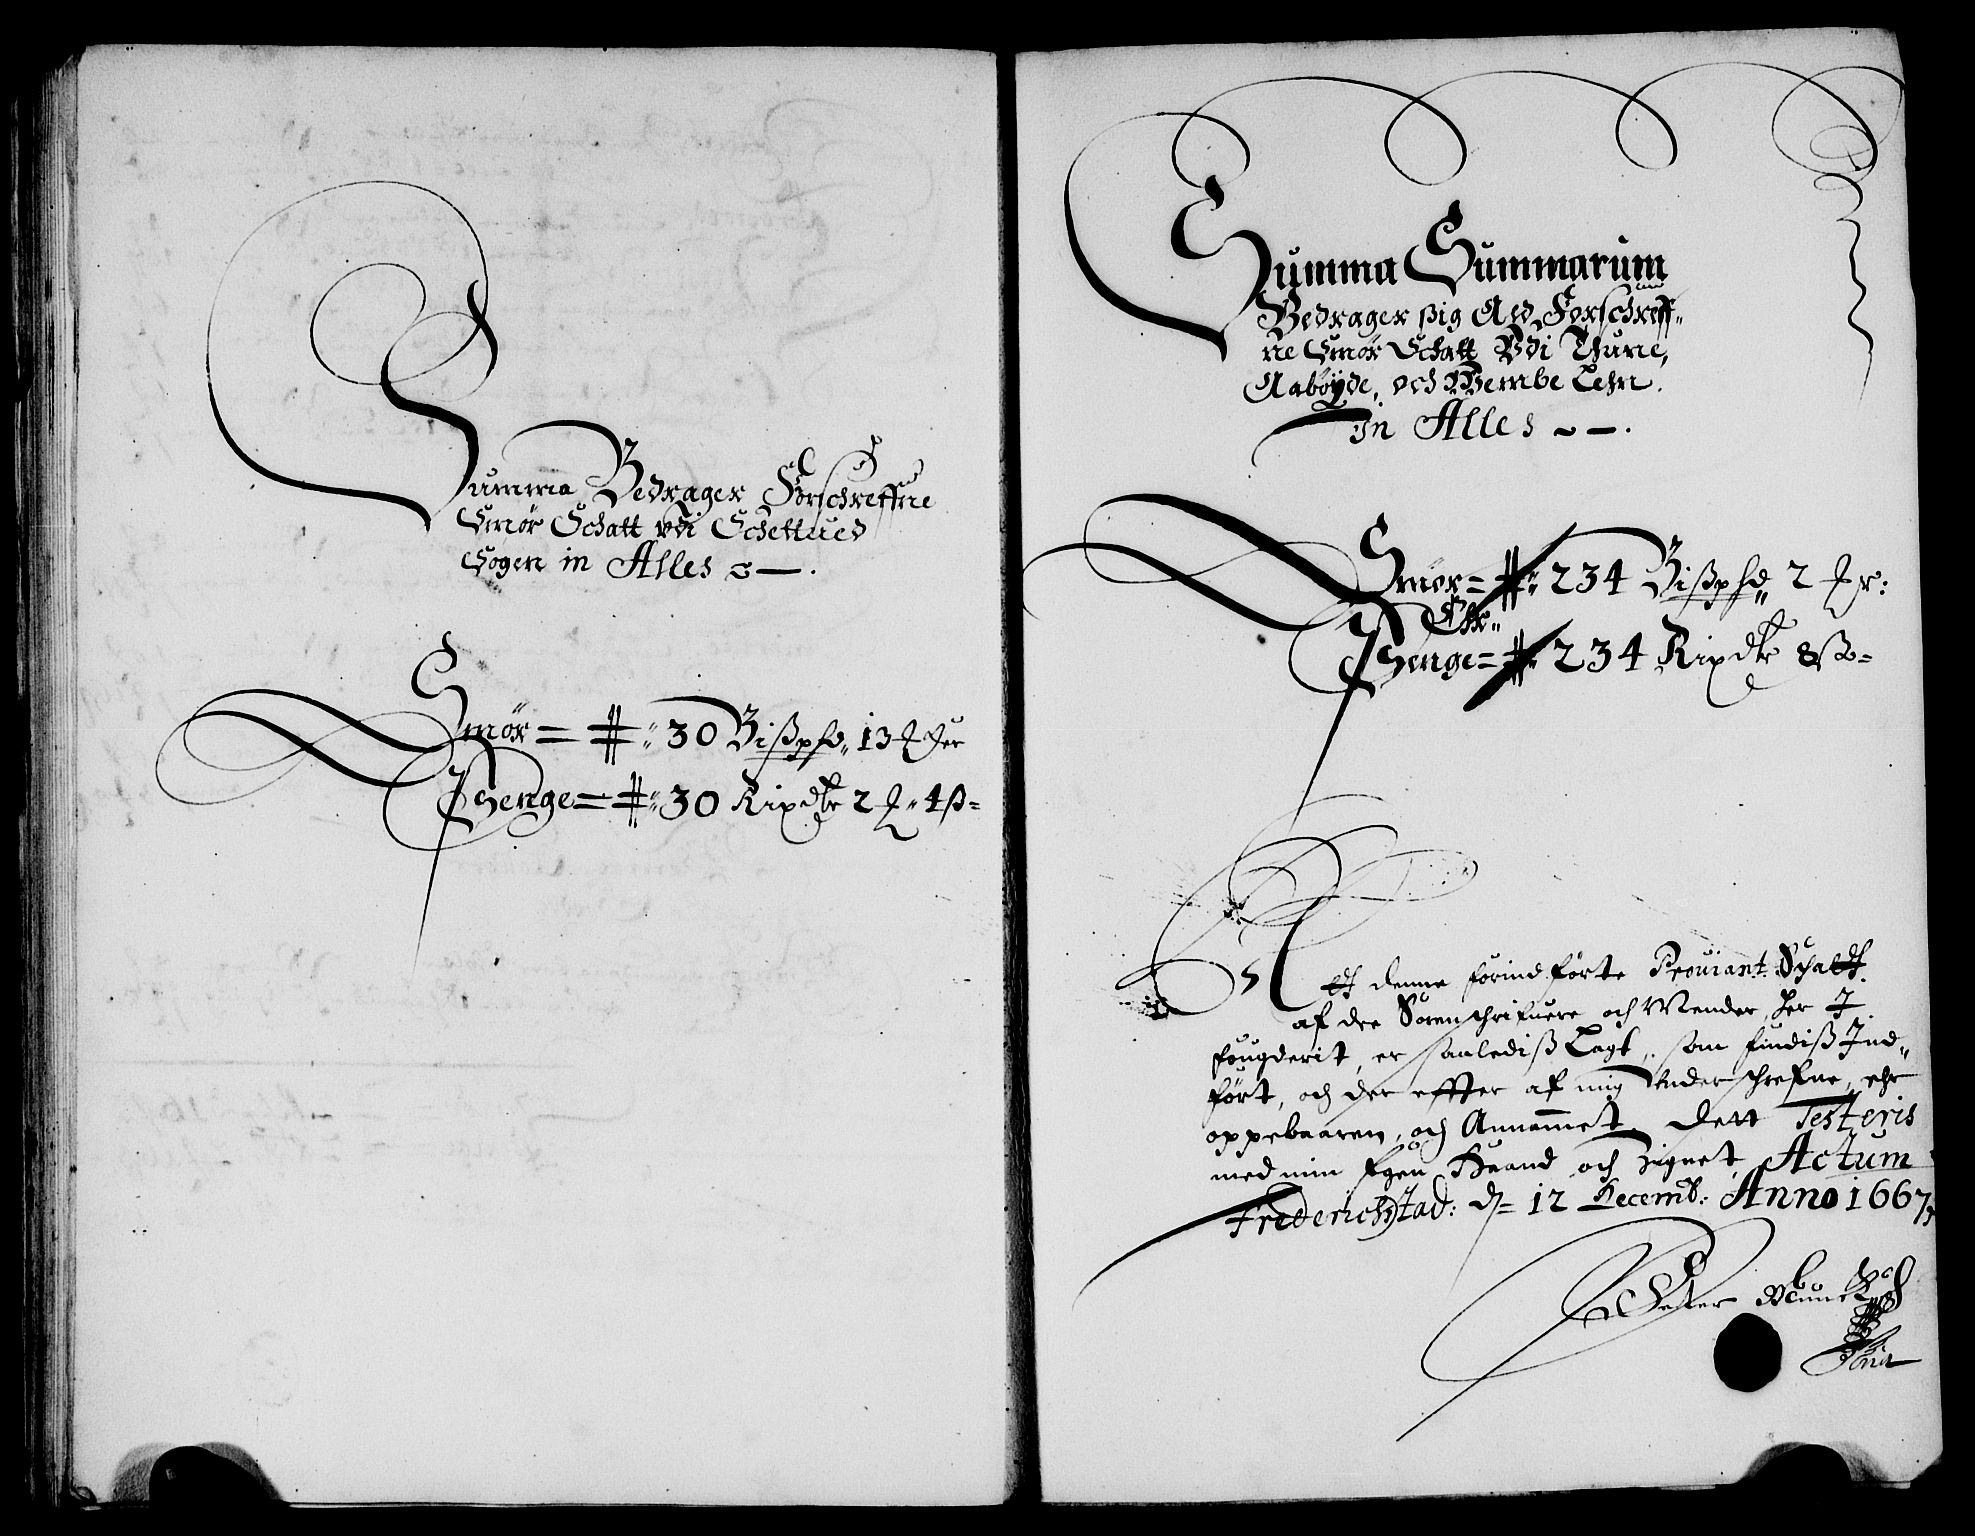 Summa Bedrager Forschreffne
Smör Schatt vdi Schettued
Sogen in Alles
Smör = # 30 Bißpfd 13
Penge = # 30 Rixdlr 2 4 ß
Summa Summarum
Bedrager sig Aed Forschreff-
ne Smör Schatt Vdi Thune,
Aabøyde, och Wembe Lehn.
In Alles
Smör = # 234 Bißpfd 2
Eller
Penge = # 234 Rixdlr 8 ß
Att denne forindførte Prouiant Schatt
af dee Sorenschrifuere och Mender her J
fougderit, er saalediß Lagt, som findiß Ind-
fört, och der effter af mig Vnderschrefne, ehr
oppebaaren, och Annammet, Dett Testeris
med min Egen Haand och Zignet, Actum
Frederichstad: d = 12 Decemb: Anno 1667
Petter Munck